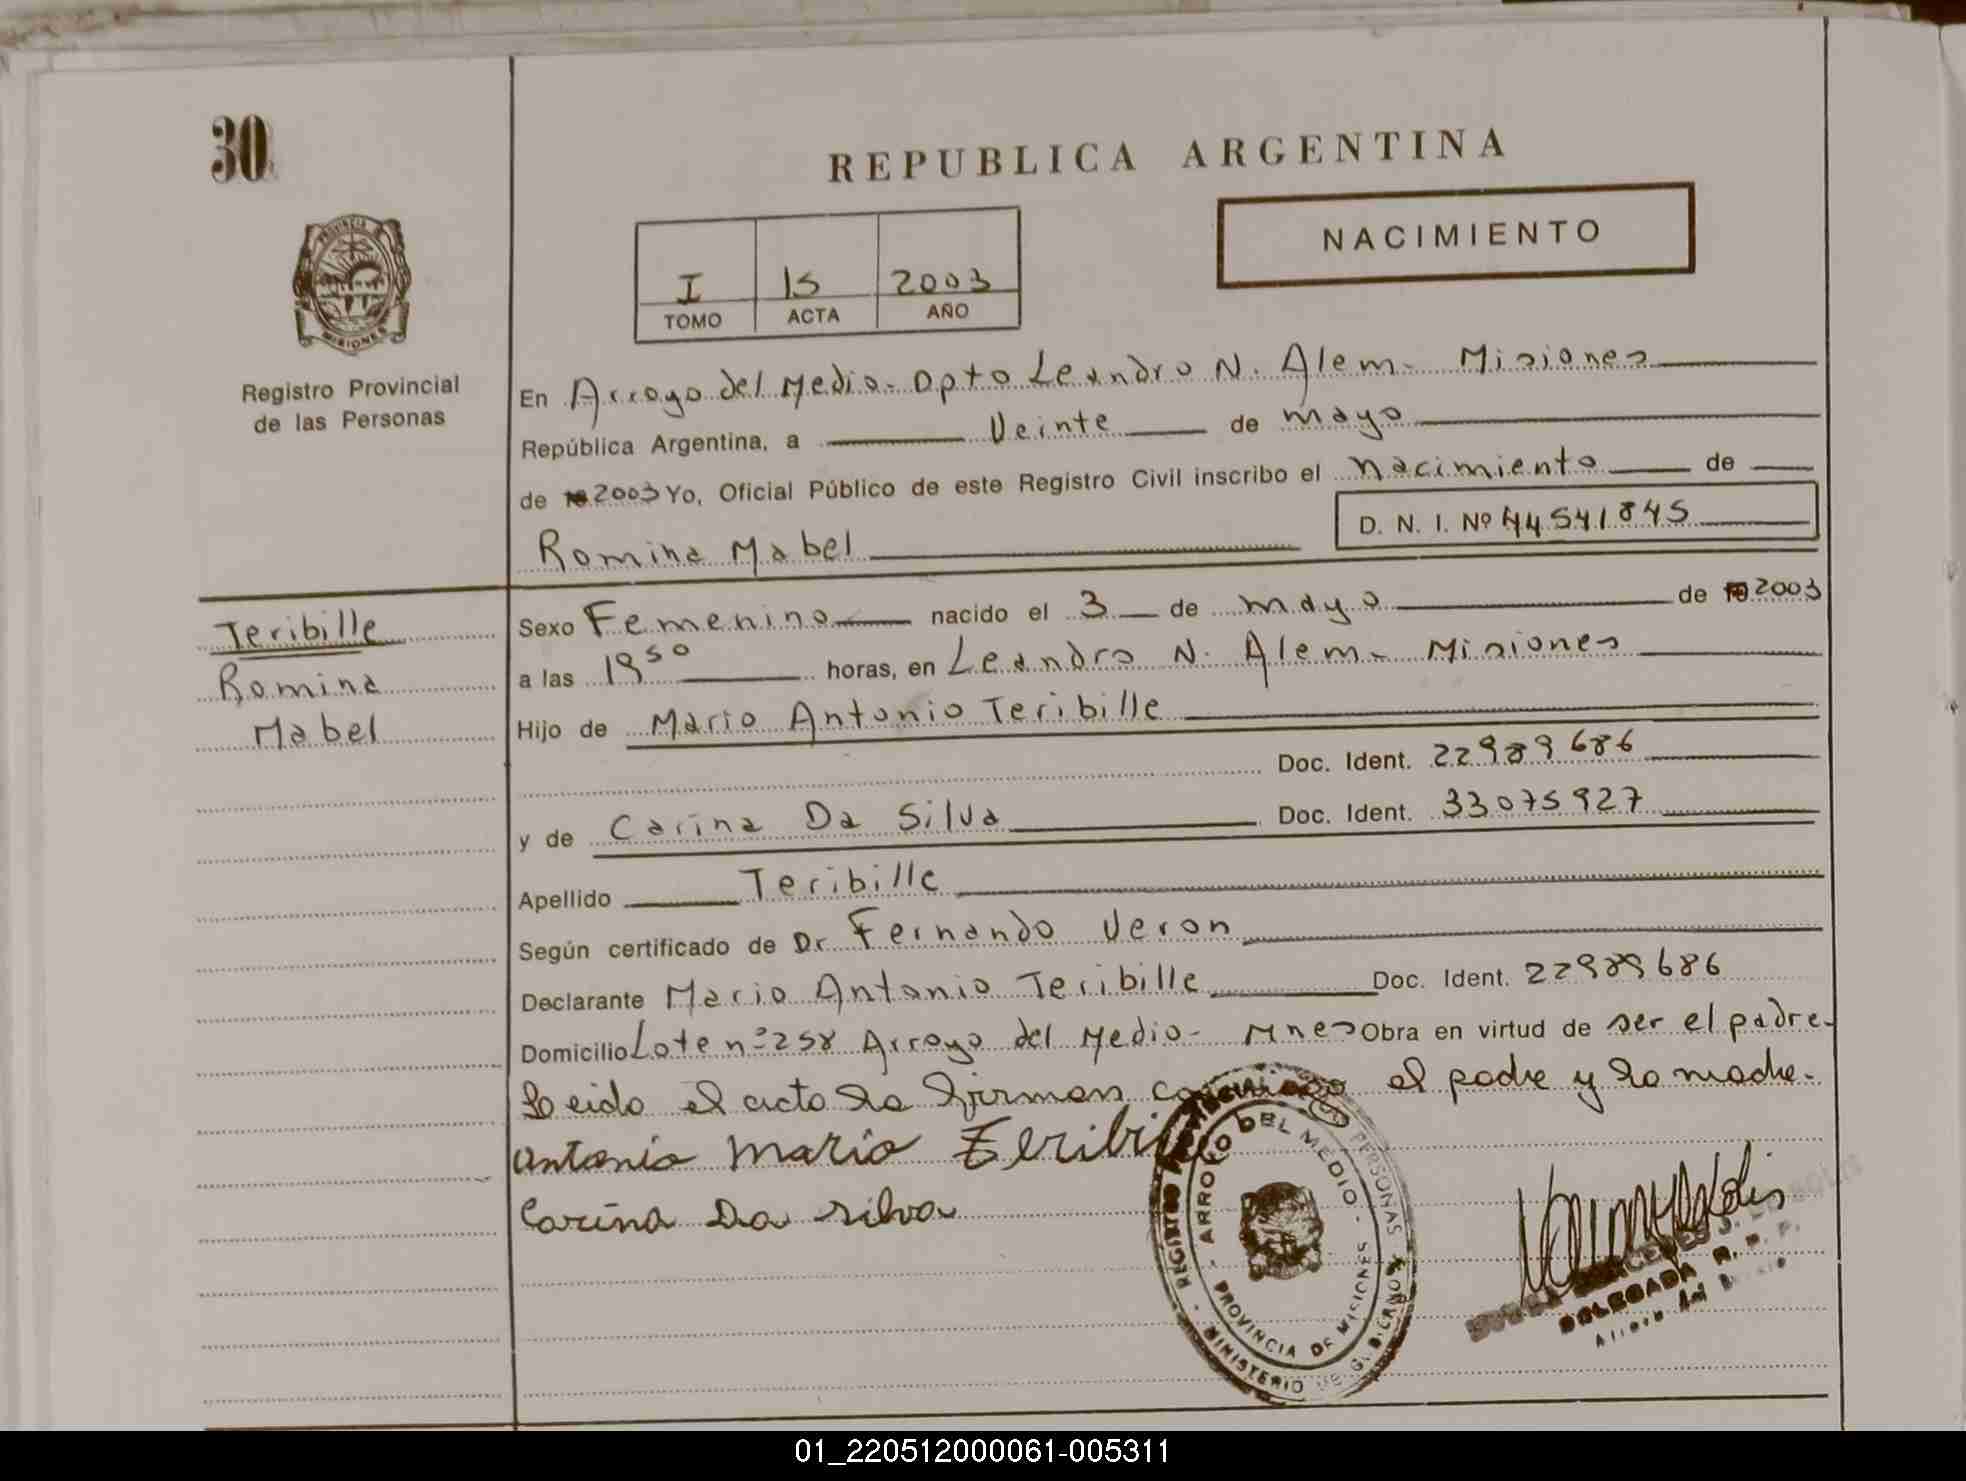 30
REPUBLICA ARGENTINA
NACIMIENTO
I 15 2003
TOMO ACTA AÑO
PROVINCIA DE
MISIONES
Registro Provincial
de las Personas
En Arroyo del Medio - Dpto Leandro N. Alem - Misiones
República Argentina, a Veinte de mayo
de 2003 Yo, Oficial Público de este Registro Civil inscribo el nacimiento de
D. N. I. Nº 44541845
Romina Mabel
Teribille
Romina
Mabel
Sexo Femenino nacido el 3 de mayo de 2003
a las 19 50 horas, en Leandro N. Alem - Misiones
Hijo de Mario Antonio Teribille
Doc. Ident. 22989686
y de Carina Da Silva Doc. Ident. 33075927
Apellido Teribille
Según certificado de Dr Fernando Veron
Declarante Mario Antonio Teribille Doc. Ident. 22989686
Domicilio Lote nº 258 Arroyo del Medio - Mnes Obra en virtud de ser el padre-
Leido el acta la firman el padre y la madre.
Antonio Mario
Carina Da Silva
REGISTRO PROVINCIAL PERSONAS
ARROYO DEL MEDIO -
PROVINCIA DE MISIONES
MINISTERIO DE GOBIERNO
DELEGADA R. P. P.